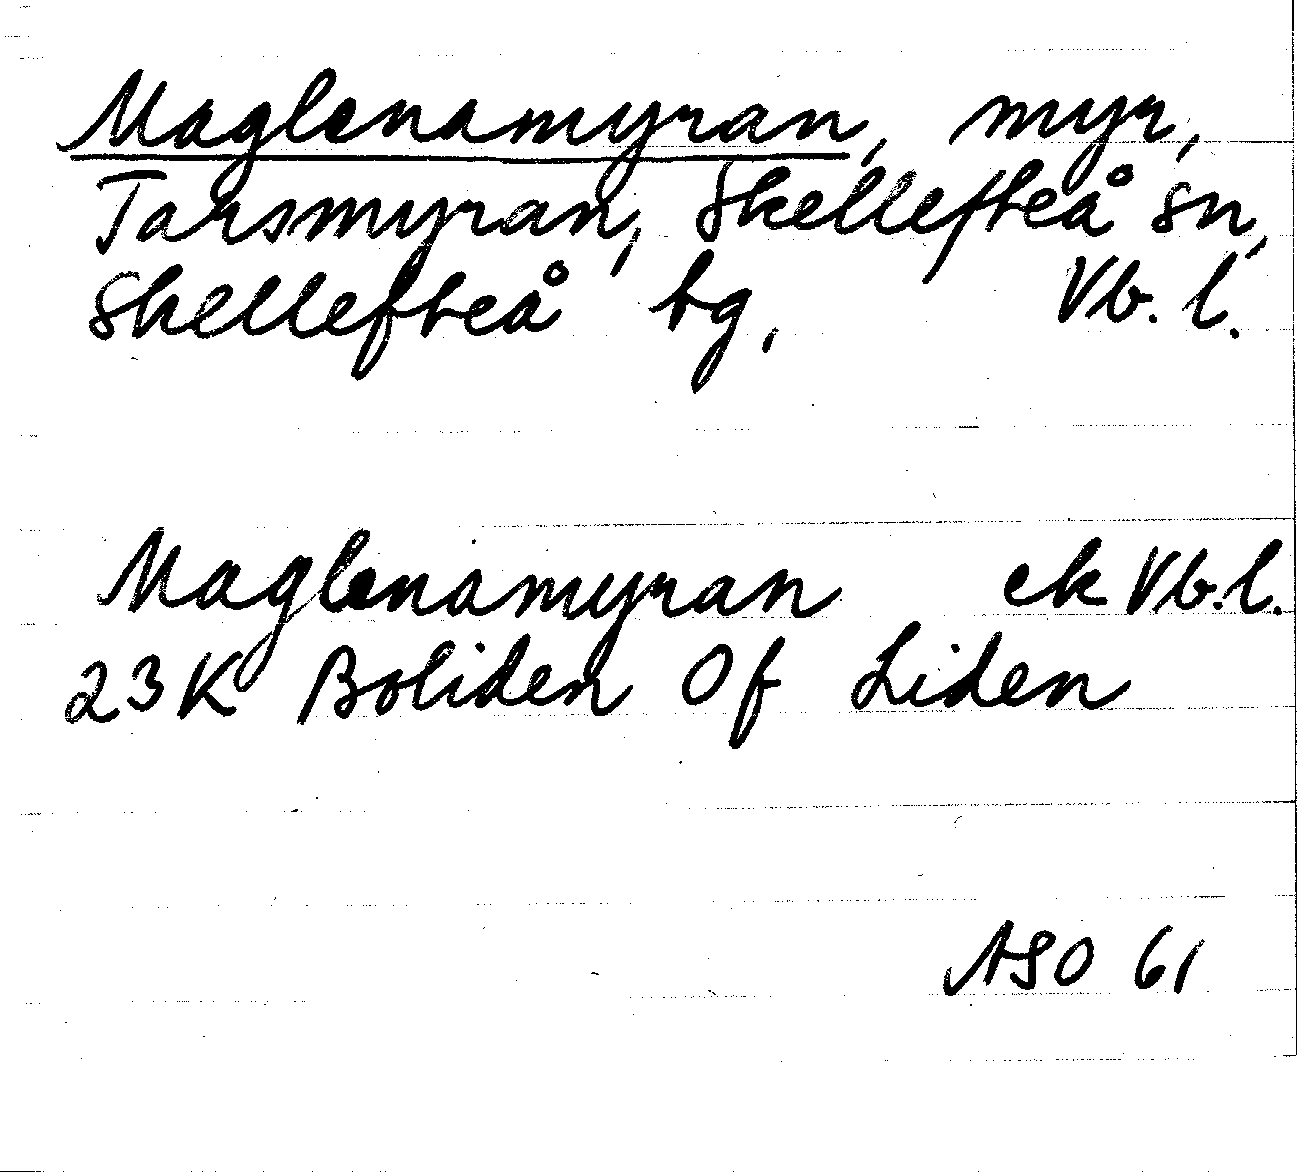 Maglenamyran, myr,
Tarsmyran, Skellefteå sn,
Skellefteå tg, Vb. l.
Maglenamyran ek Vb. l.
23K Boliden Of Liden
ASO 61